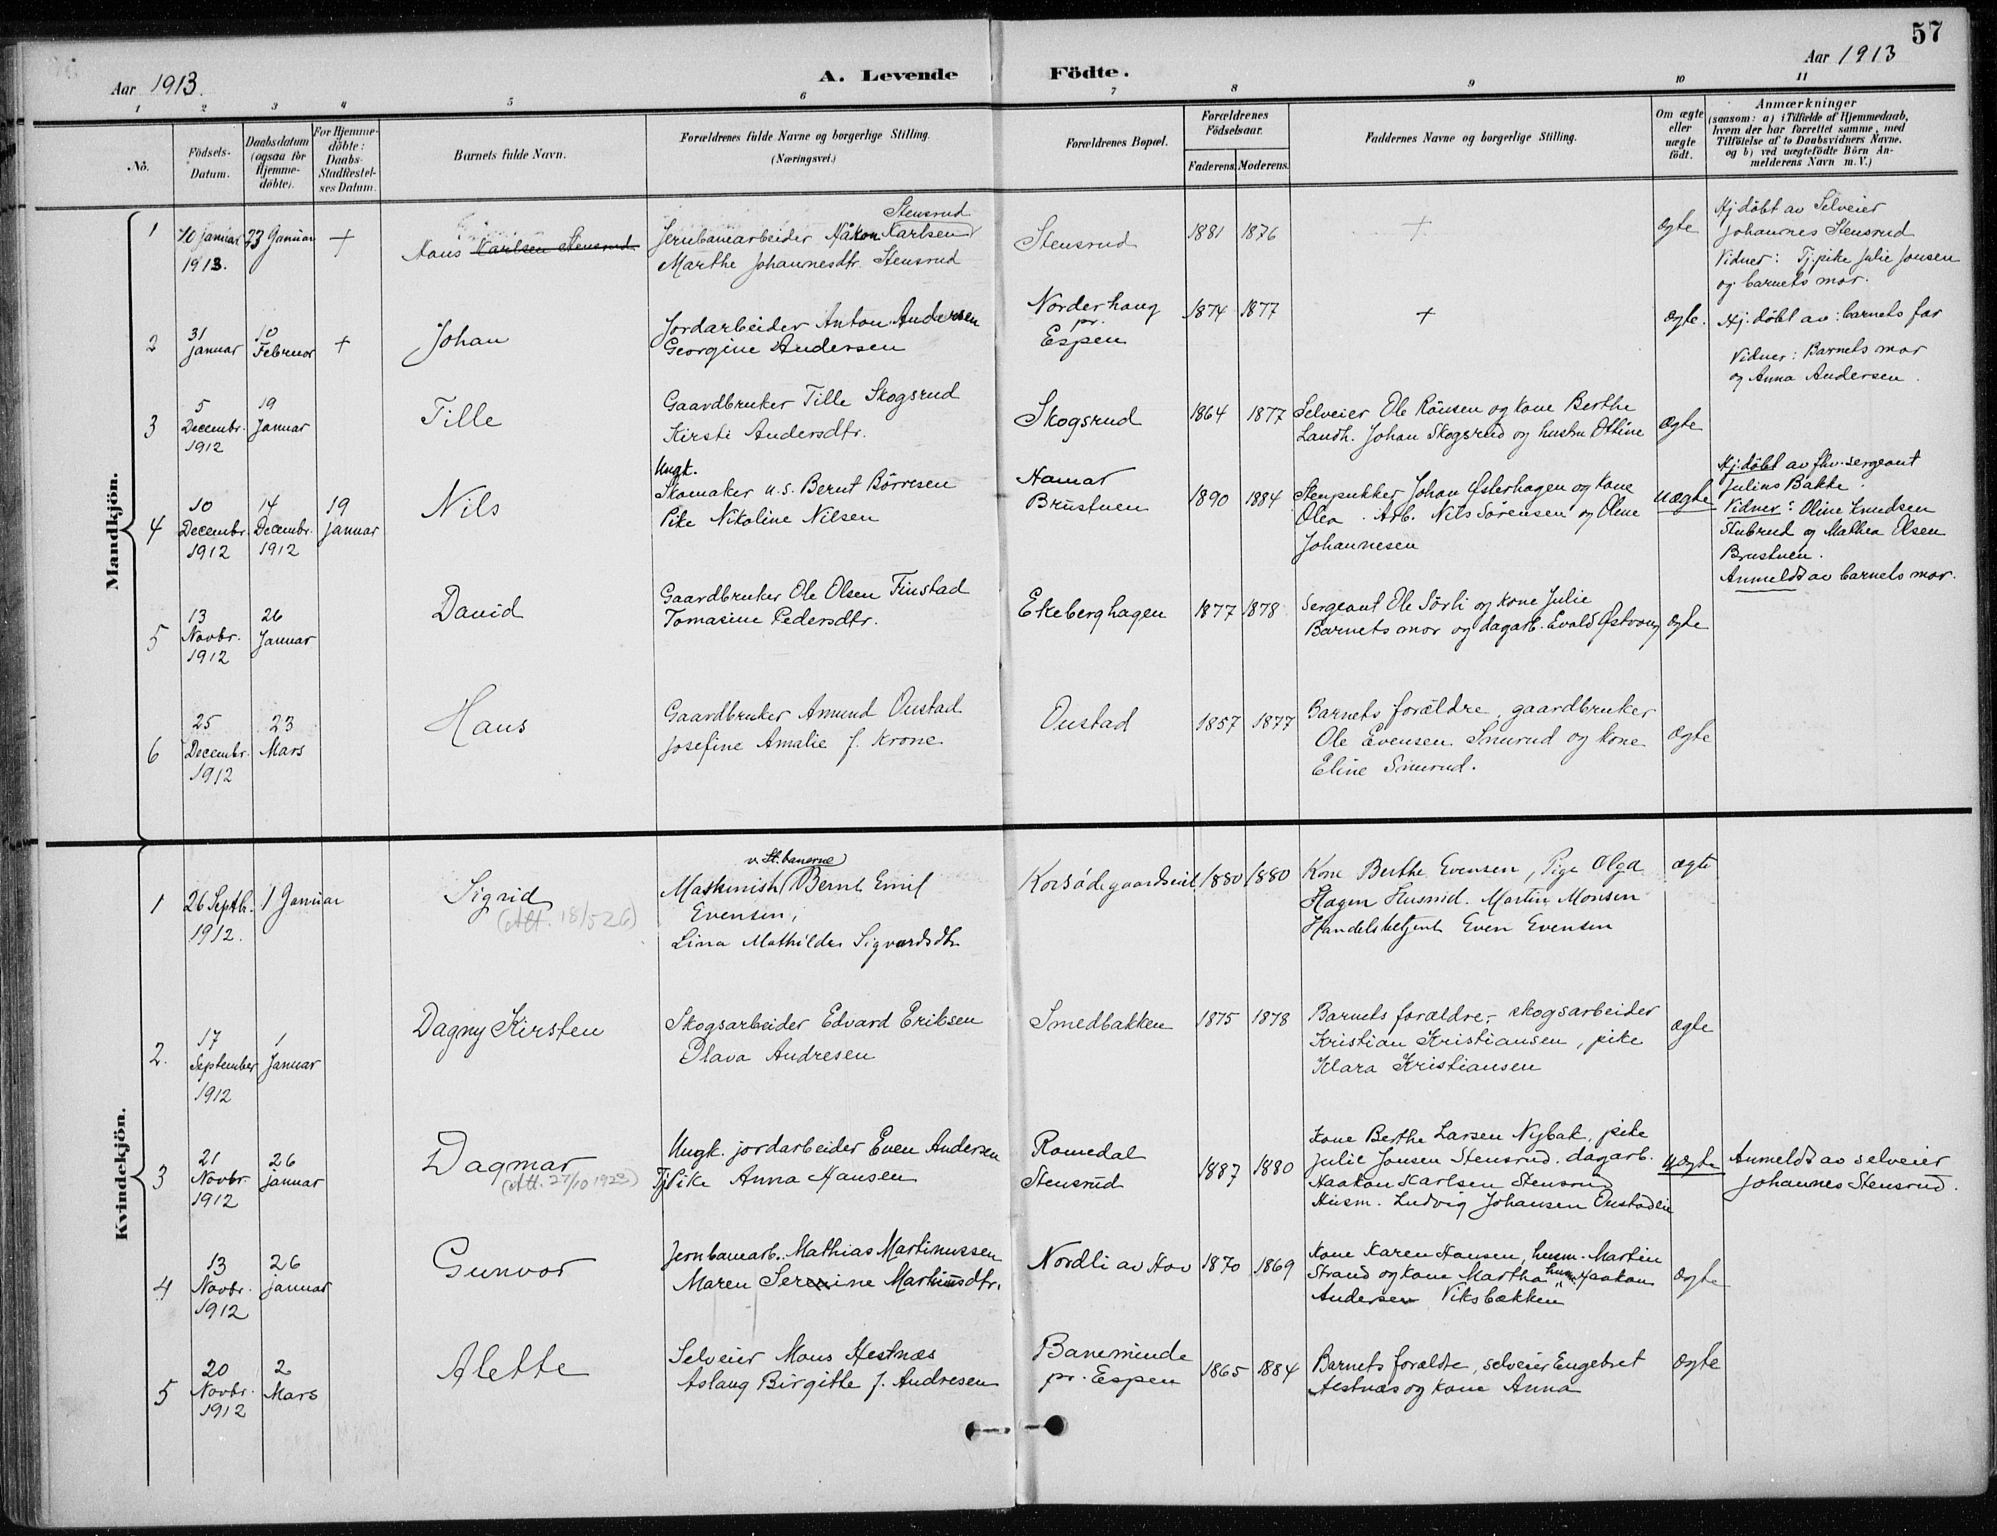 57
Aar 1913.
A. Levende Födte.
Aar 1913
1 2 3 4 5 6 7 8 9 10 11
No.
Födsels-Datum.
Daabsdatum (ogsaa for Hjemme-döbte).
For Hjemme-döbte: Daabs-Stadfæstel-ses Datum.
Barnets fulde Navn.
Forældrenes fulde Navne og borgerlige Stilling.
(Næringsvei.)
Forældrenes Bopæl.
Forældrenes Födselsaar.
Faderens. Moderens.
Faddernes Navne og borgerlige Stilling.
Om ægte eller uægte födt.
Anmærkninger
(saasom: a) i Tilfælde af Hjemmedaab,
hvem der har forrettet samme, med
Tilföielse af to Daabsvidners Navne.
og b) ved uægtefödte Börn An-
melderens Navn m. V.)
Mandkjön.
1
10 januar 1913.
23 Januar
+
Hans Karlsen Stensrud
Stensrud
Jernbanearbeider Håkon Karlsen
Marthe Johannesdtr. Stensrud
Stensrud
1881 1876
+
Ægte
Hj.döbt av Selveier
Johannes Stensrud
Vidner: Tj.pike Julie Jonsen
og barnets mor.
2
31 januar
10 Februar
+
Johan
Jordarbeider Anton Andersen
Georgine Andersen
Norderhaug
pr.
Espen
1874 1877
+
Ægte.
Hj.döbt av: barnets far
Vidner: Barnets mor
og Anna Andersen.
3
5 Decembr. 1912
19 Januar
Tille
Gaardbruker Tille Skogsrud
Kirsti Andersdtr.
Skogsrud
1864 1877
Selveier Ole Rönsen og kone Berthe
Landh. Johan Skogsrud og hustru Ottine
Ægte
4
10 Decembr. 1912
14 Decembr. 1912
19 Januar
Nils
Ungk.
Skomaker u.s. Bernt Börresen
Pike Nikoline Nilsen
Hamar
Brustuen
1890 1884
Stenpukker Johan Østerhagen og kone
Olea. Arb. Nils Sörensen og Oline
Johannesen
uægte
Hj.döbt av fhv. sergeant
Julius Bakke.
Vidner: Oline Knudsen
Stubrud og Mathea Olsen
Brustuen.
Anmeldt av barnets mor.
5
13 Novbr. 1912
26 Januar
David
Gaardbruker Ole Olsen Finstad
Tomasine Pedersdtr.
Ekeberghagen
1877 1878
Sergeant Ole Sörli og kone Julie
Barnets mor og dagarb. Evald Østvang
Ægte
6
25 Decembr. 1912
23 Mars
Hans
Gaardbruker Amund Oustad
Josefine Amalie f. Krone
Oustad
1857 1877
Barnets forældre, gaardbruker
Ole Evensen Smurud og kone
Eline Smurud.
Ægte
Kvindekjön.
1
26 Septb. 1912.
1 Januar
Sigrid
(Att. 18/5 26)
v. St.banerne
Maskinist Bernt Emil
Evensen,
Lina Mathilde Sigvardsdtr.
Korsödegaardseiet
1880 1880
Kone Berthe Evensen, Pige Olga
Hagen Husmd. Martin Monsen
Handelsbetjent Even Evensen
ægte
2.
17 September 1912
1 Januar
Dagny Kirsten
Skogsarbeider Edvard Eriksen
Olava Andresen
Smedbakken
1875 1878
Barnets forældre, skogsarbeider
Kristian Kristiansen, pike
Klara Kristiansen
Ægte
3
21 Novbr. 1912
26 Januar
Dagmar
(Att. 27/10 1923)
Ungk. jordarbeider Even Andersen
Tj.Pike Anna Hansen
Romedal
Stensrud
1887 1880
Kone Berthe Larsen Nybak, pike
Julie Jonsen Stensrud. dagarb.
Haakon Karlsen Stensrud
Husm. Ludvig Johansen Oustadeie
uægte
Anmeldt av selveier
Johannes Stensrud.
4
13 Novbr. 1912
26 januar
Gunvor
Jernbanearb. Mathias Martinussen
Maren Serine Martinusdtr.
Nordli av Hov
1870 1869
Kone Karen Hansen, husm. Martin
Strand og kone Martha husm. Haakon
Andersen Viksbækken
Ægte
5
20 Novbr. 1912
2 Mars
Alette
Selveier Mons Hestnæs
Aslaug Birgitte f. Andresen
Baneminde
pr. Espen
1865 1884
Barnets forældre, selveier Engebret
Hestnæs og kone Anna
Ægte